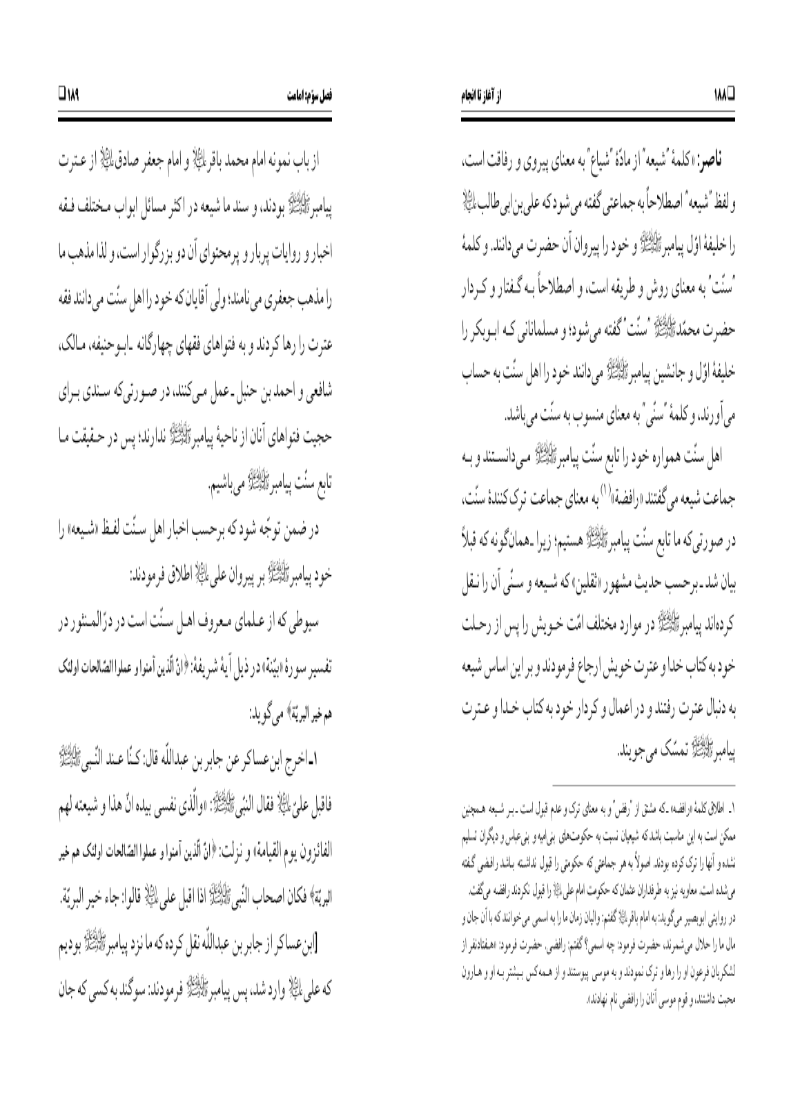 ❑ ۱۸۸ از آغاز تا انجام
ناصر: «کلمهٔ "شیعه" از مادّهٔ "شیاع" به معنای پیروی و رفاقت است،
و لفظ "شیعه" اصطلاحاً به جماعتی گفته می‌شود که علی‌بن‌ابی‌طالب علیه‌السلام
را خلیفهٔ اوّل پیامبر ﷺ و خود را پیروان آن حضرت می‌دانند. و کلمهٔ
"سنّت" به معنای روش و طریقه است، و اصطلاحاً به گفتار و کردار
حضرت محمّد ﷺ "سنّت" گفته می‌شود؛ و مسلمانانی که ابوبکر را
خلیفهٔ اوّل و جانشین پیامبر ﷺ می‌دانند خود را اهل سنّت به حساب
می‌آورند، و کلمهٔ "سنّی" به معنای منسوب به سنّت می‌باشد.
اهل سنّت همواره خود را تابع سنّت پیامبر ﷺ می‌دانستند و به
جماعت شیعه می‌گفتند «رافضة»(۱) به معنای جماعت ترک کنندهٔ سنّت،
در صورتی‌که ما تابع سنّت پیامبر ﷺ هستیم؛ زیرا ـ همان‌گونه که قبلاً
بیان شد ـ برحسب حدیث مشهور «ثقلین» که شیعه و سنّی آن را نقل
کرده‌اند پیامبر ﷺ در موارد مختلف امّت خویش را پس از رحلت
خود به کتاب خدا و عترت خویش ارجاع فرمودند و بر این اساس شیعه
به دنبال عترت رفتند و در اعمال و کردار خود به کتاب خدا و عترت
پیامبر ﷺ تمسّک می‌جویند.
۱ـ اطلاق کلمهٔ «رافضه» ـ که مشتق از "رفض" و به معنای ترک و عدم قبول است ـ بر شیعه همچنین
ممکن است به این مناسبت باشد که شیعیان نسبت به حکومت‌های بنی‌امیه و بنی‌عباس و دیگران تسلیم
نشده و آنها را ترک کرده بودند. اصولاً به هر جماعتی که حکومتی را قبول نداشته باشد رافضی گفته
می‌شده است. معاویه نیز به طرفداران عثمان که حکومت امام علی علیه‌السلام را قبول نکردند رافضه می‌گفت.
در روایتی ابوبصیر می‌گوید: به امام باقر علیه‌السلام گفتم: والیان زمان ما را به اسمی می‌خوانند که با آن جان و
مال ما را حلال می‌شمرند، حضرت فرمود: چه اسمی؟ گفتم: رافضی. حضرت فرمود: «هفتاد نفر از
لشکریان فرعون او را رها و ترک نمودند و به موسی پیوستند و از همه کس بیشتر به او و هارون
محبت داشتند، و قوم موسی آنان را رافضی نام نهادند».
فصل سوّم: امامت ۱۸۹ ❑
از باب نمونه امام محمد باقر علیه‌السلام و امام جعفر صادق علیه‌السلام از عترت
پیامبر ﷺ بودند، و سند ما شیعه در اکثر مسائل ابواب مختلف فقه
اخبار و روایات پربار و پرمحتوای آن دو بزرگوار است، و لذا مذهب ما
را مذهب جعفری می‌نامند؛ ولی آقایان که خود را اهل سنّت می‌دانند فقه
عترت را رها کردند و به فتواهای فقهای چهارگانه ـ ابوحنیفه، مالک،
شافعی و احمد بن حنبل ـ عمل می‌کنند، در صورتی‌که سندی برای
حجیت فتواهای آنان از ناحیهٔ پیامبر ﷺ ندارند؛ پس در حقیقت ما
تابع سنّت پیامبر ﷺ می‌باشیم.
در ضمن توجّه شود که برحسب اخبار اهل سنّت لفظ «شیعه» را
خود پیامبر ﷺ بر پیروان علی علیه‌السلام اطلاق فرمودند:
سیوطی که از علمای معروف اهل سنّت است در درّالمنثور در
تفسیر سورهٔ «بیّنة» در ذیل آیهٔ شریفهٔ: ﴿انّ الّذین آمنوا و عملوا الصّالحات اولئک
هم خیر البریّة﴾ می‌گوید:
۱ـ اخرج ابن عساکر عن جابر بن عبداللّه قال: کنّا عند النّبی ﷺ
فاقبل علیّ علیه‌السلام فقال النّبی ﷺ: «والّذی نفسی بیده انّ هذا و شیعته لهم
الفائزون یوم القیامة» و نزلت: ﴿انّ الّذین آمنوا و عملوا الصّالحات اولئک هم خیر
البریّة﴾ فکان اصحاب النّبی ﷺ اذا اقبل علی علیه‌السلام قالوا: جاء خیر البریّة.
[ابن عساکر از جابر بن عبداللّه نقل کرده که ما نزد پیامبر ﷺ بودیم
که علی علیه‌السلام وارد شد، پس پیامبر ﷺ فرمودند: سوگند به کسی که جان